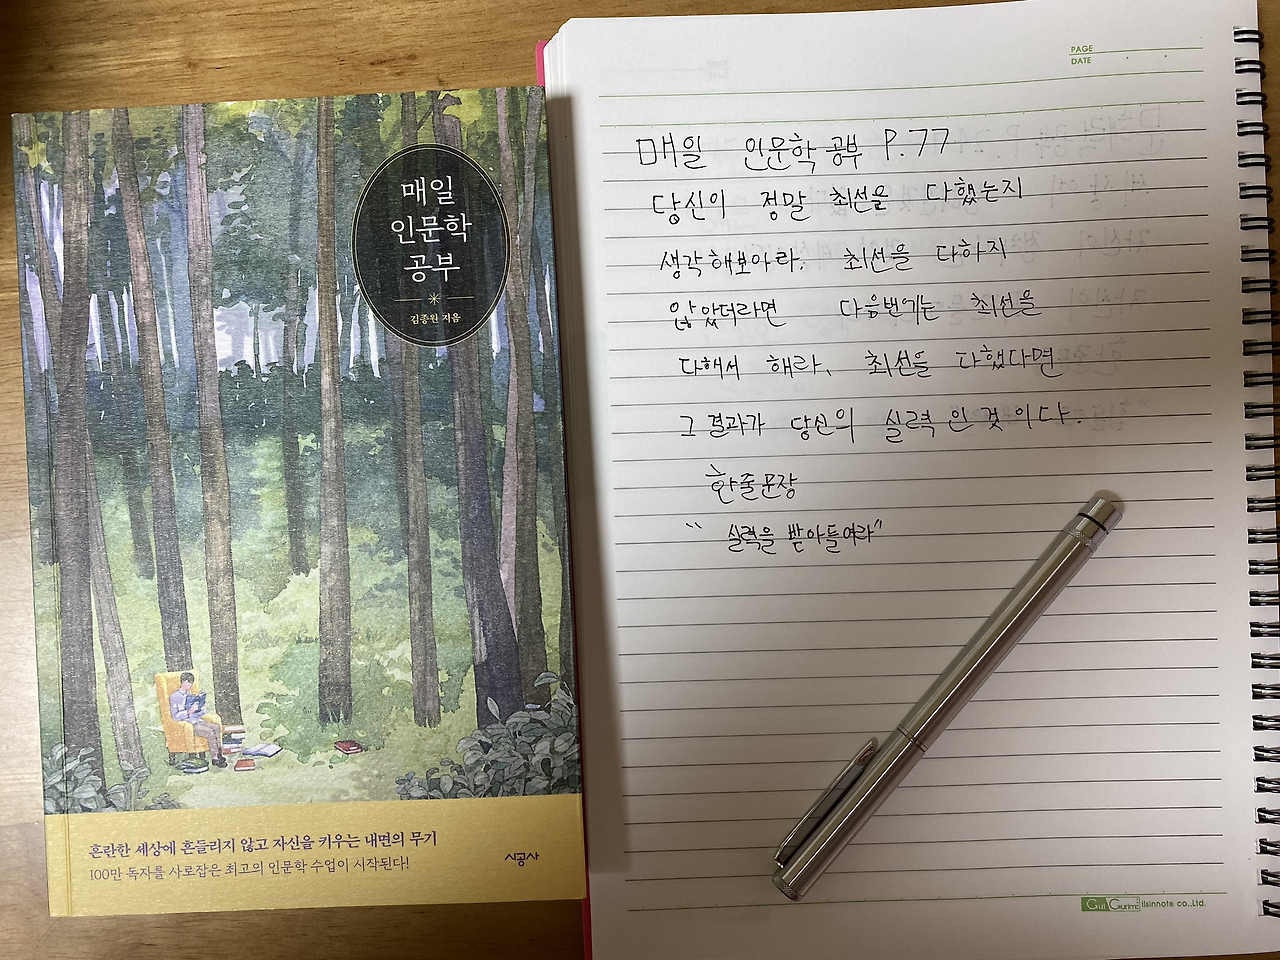 매일
인문학
공부
김종원 지음
혼란한 세상에 흔들리지 않고 자신을 키우는 내면의 무기
100만 독자를 사로잡은 최고의 인문학 수업이 시작된다!
시공사
PAGE
DATE
매일 인문학 공부 P.77
당신이 정말 최선을 다했는지
생각해보아라. 최선을 다하지
않았더라면 다음번에는 최선을
다해서 해라. 최선을 다했다면
그 결과가 당신의 실력인 것이다.
한줄문장
"실력을 받아들여라"
Gui Gurimi ilsinnote co.,Ltd.